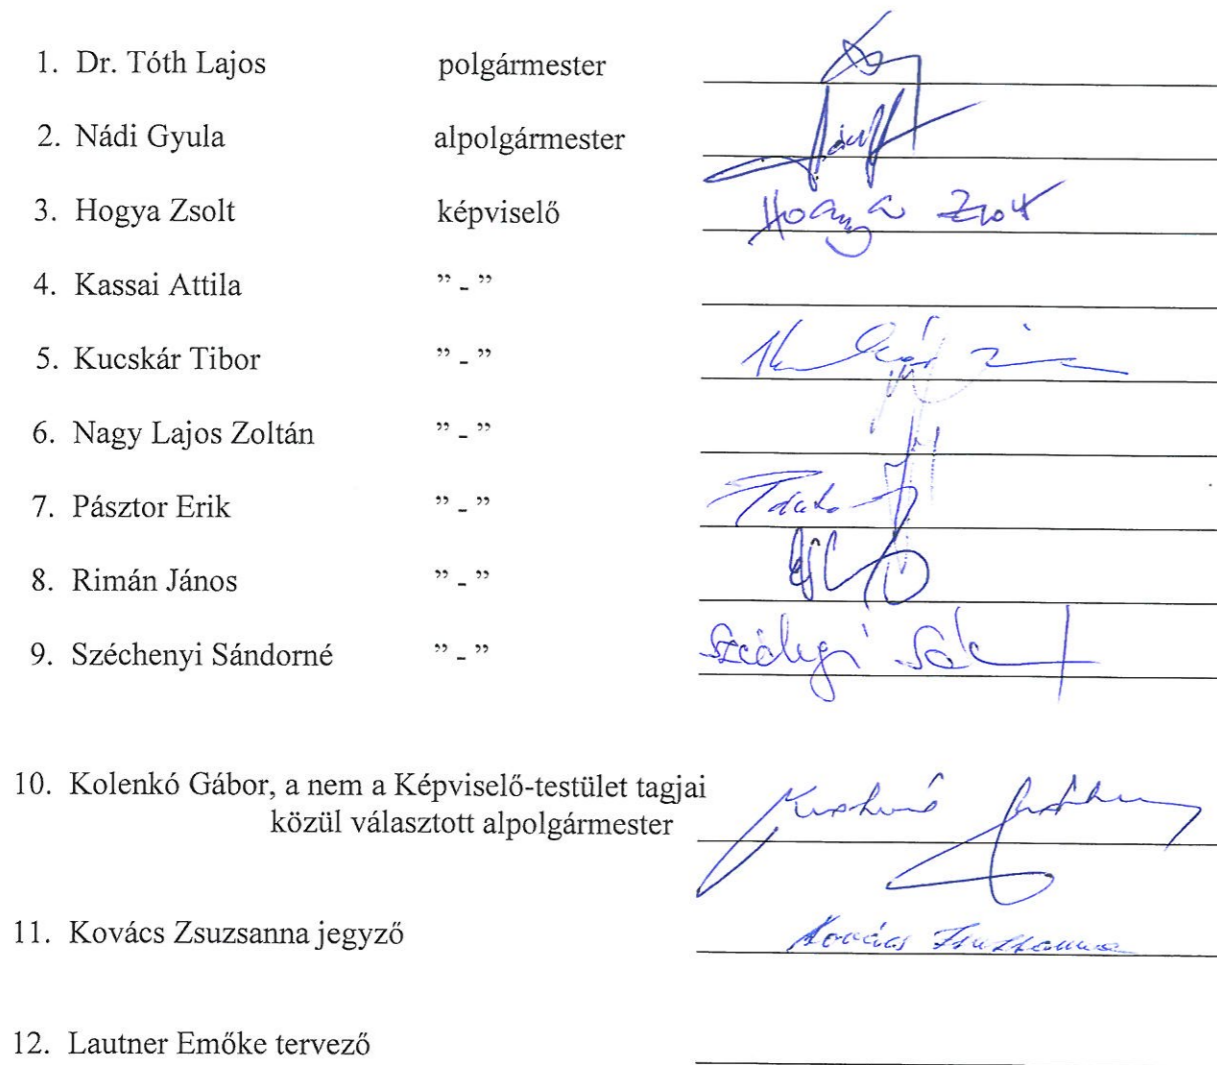 1. Dr. Tóth Lajos polgármester
2. Nádi Gyula alpolgármester
3. Hogya Zsolt képviselő Hogya Zsolt
4. Kassai Attila ” - ”
5. Kucskár Tibor ” - ”
6. Nagy Lajos Zoltán ” - ”
7. Pásztor Erik ” - ”
8. Rimán János ” - ”
9. Széchenyi Sándorné ” - ”
10. Kolenkó Gábor, a nem a Képviselő-testület tagjai
közül választott alpolgármester
11. Kovács Zsuzsanna jegyző Kovács Zsuzsanna
12. Lautner Emőke tervező